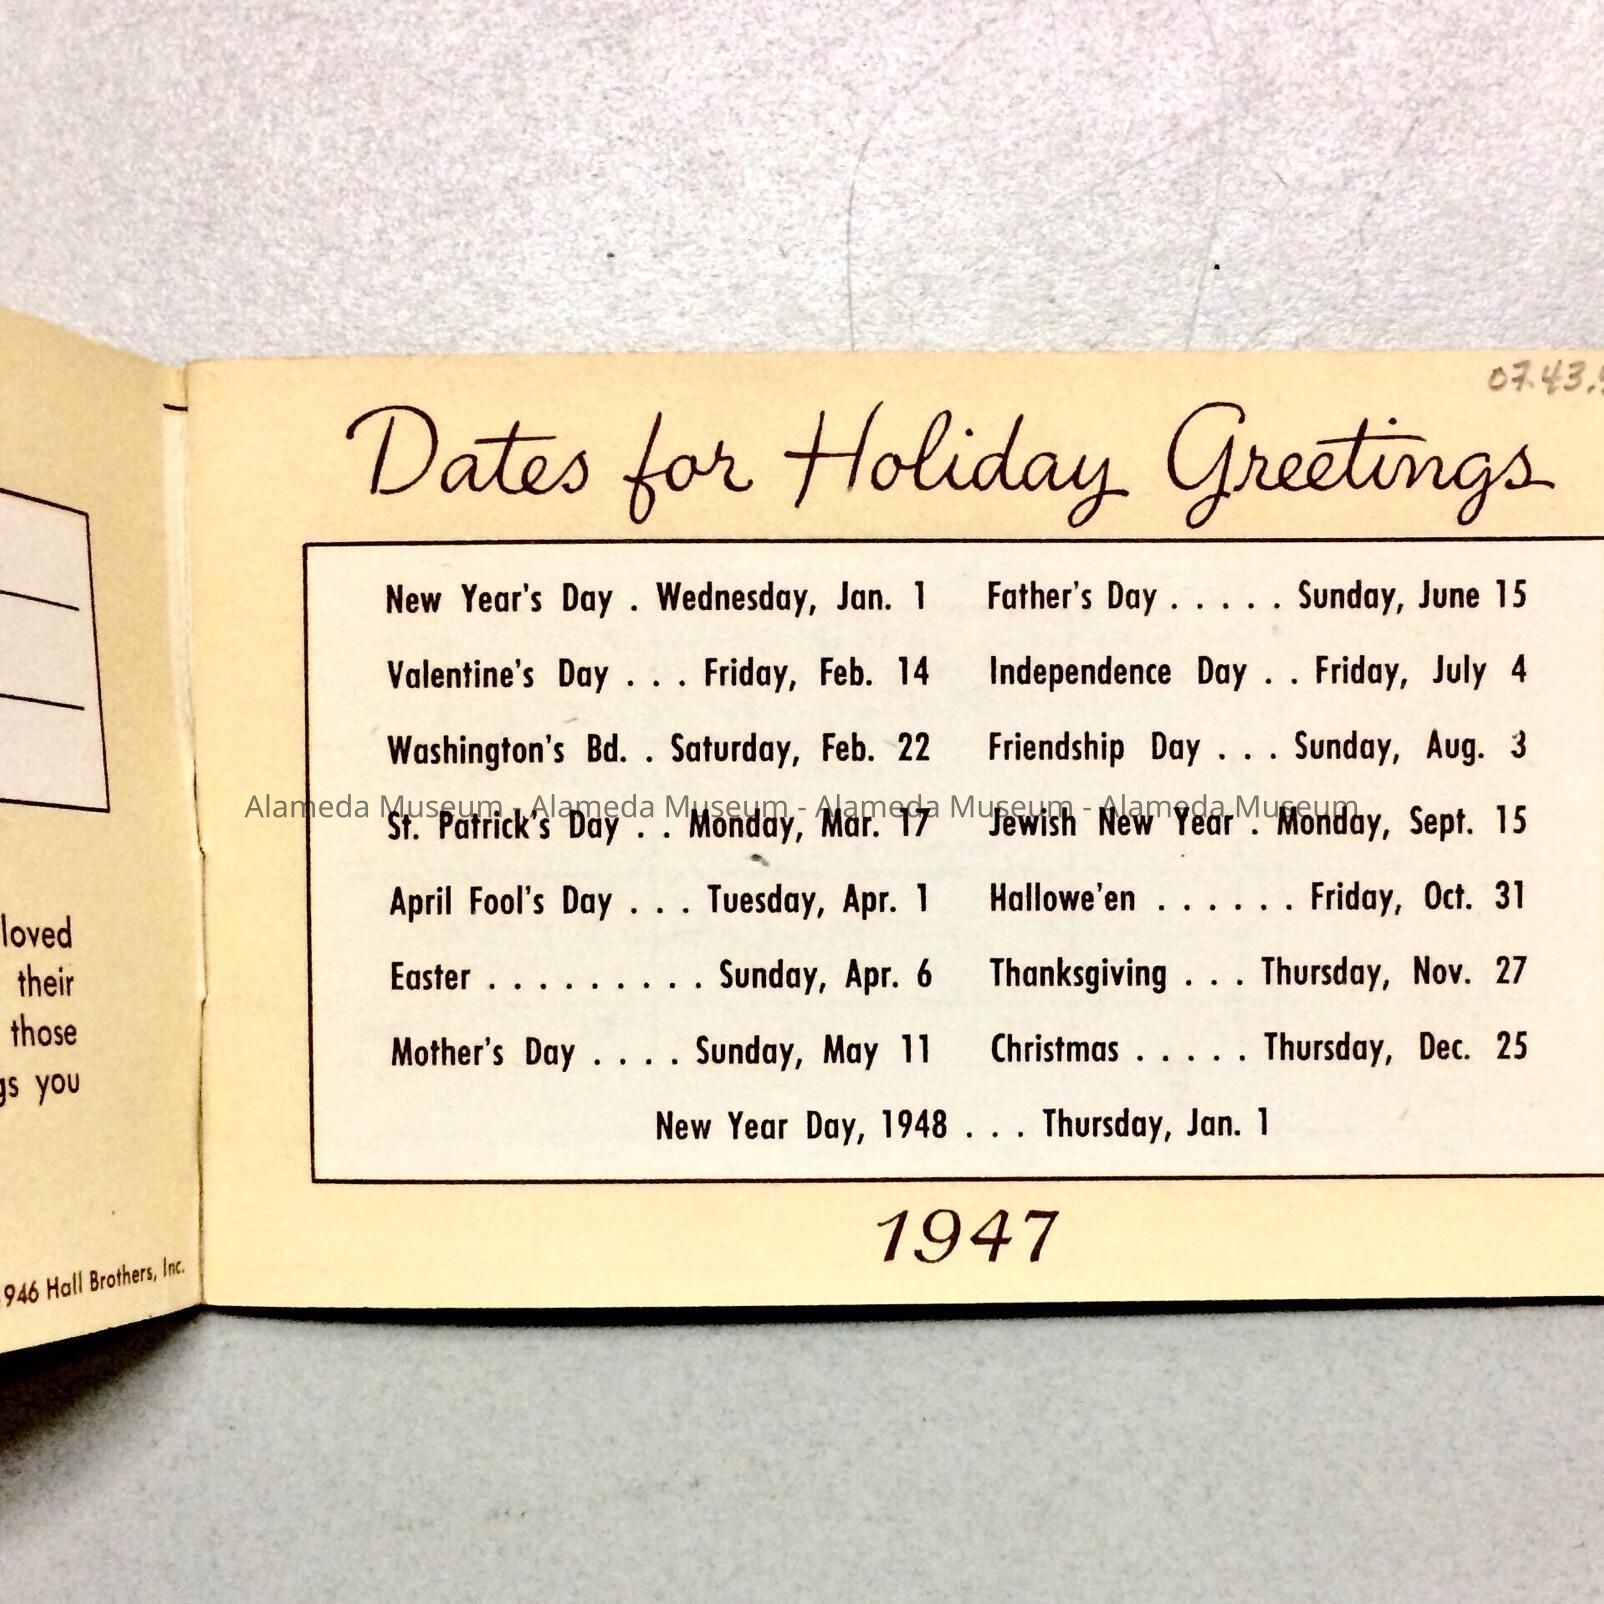 07.43.
Dates for Holiday Greetings
New Year's Day . Wednesday, Jan. 1
Valentine's Day . . . Friday, Feb. 14
Washington's Bd. . Saturday, Feb. 22
St. Patrick's Day . . Monday, Mar. 17
April Fool's Day . . . Tuesday, Apr. 1
Easter . . . . . . . . . Sunday, Apr. 6
Mother's Day . . . . Sunday, May 11
Father's Day . . . . . Sunday, June 15
Independence Day . . Friday, July 4
Friendship Day . . . Sunday, Aug. 3
Jewish New Year . Monday, Sept. 15
Hallowe'en . . . . . . Friday, Oct. 31
Thanksgiving . . . Thursday, Nov. 27
Christmas . . . . . Thursday, Dec. 25
New Year Day, 1948 . . . Thursday, Jan. 1
1947
Alameda Museum - Alameda Museum - Alameda Museum - Alameda Museum
loved
their
those
gs you
946 Hall Brothers, Inc.